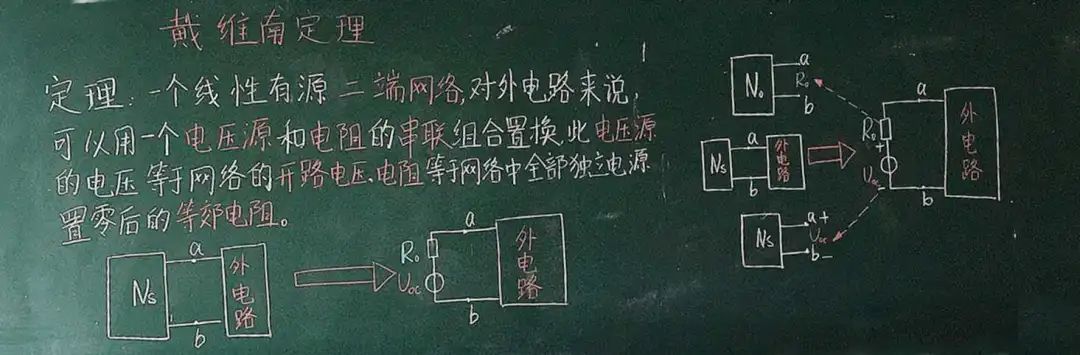 戴维南定理
定理:一个线性有源二端网络,对外电路来说,
可以用一个电压源和电阻的串联组合置换,此电压源
的电压等于网络的开路电压、电阻等于网络中全部独立电源
置零后的等郊电阻。
Ns
a
b
外电路
R₀
Uoc
a
b
外电路
N₀
a
R₀
b
Ns
a
b
外电路
Ns
a+
Uoc
b-
R₀
+
Uoc
-
a
b
外电路